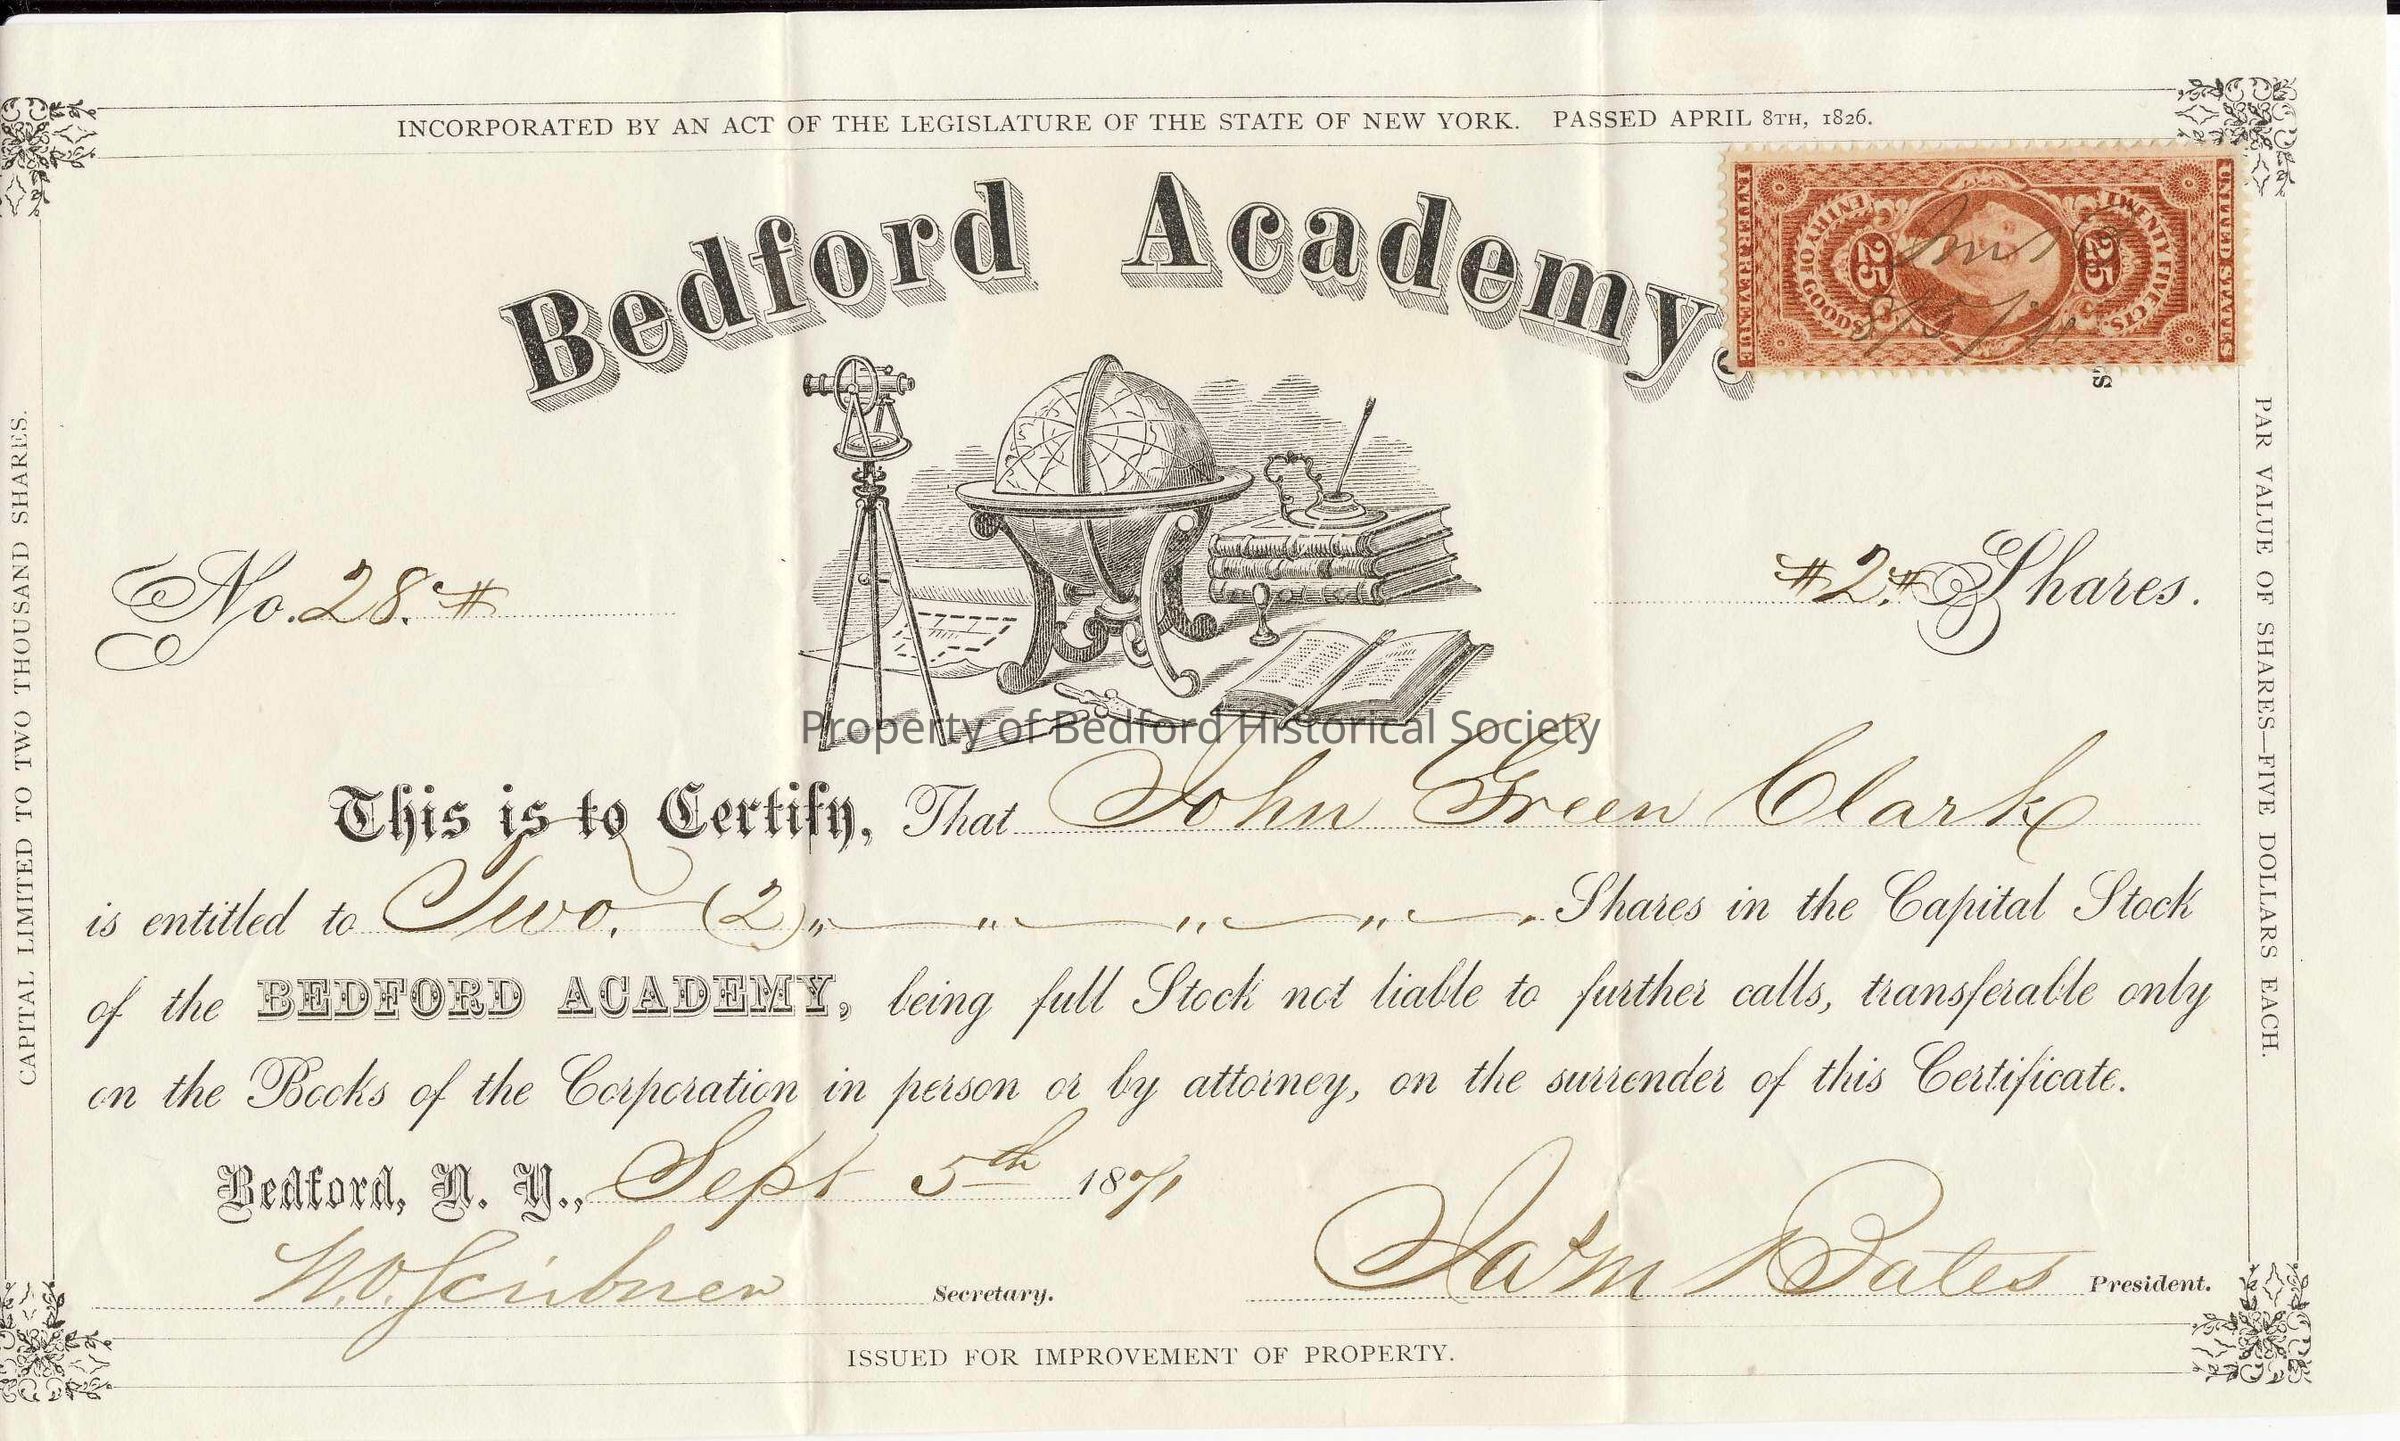 INCORPORATED BY AN ACT OF THE LEGISLATURE OF THE STATE OF NEW YORK. PASSED APRIL 8TH, 1826.
Bedford Academy,
UNITED STATES
INTER. REVENUE
TWENTY FIVE CTS.
ENTRY OF GOODS
25 25
CAPITAL LIMITED TO TWO THOUSAND SHARES.
PAR VALUE OF SHARES—FIVE DOLLARS EACH.
No. 28.#
#2.# Shares.
Property of Bedford Historical Society
This is to Certify, That John Green Clark
is entitled to Two. (2) Shares in the Capital Stock
of the BEDFORD ACADEMY, being full Stock not liable to further calls, transferable only
on the Books of the Corporation in person or by attorney, on the surrender of this Certificate.
Bedford, N. Y., Sept 5th 1871
Scribner Secretary.
Bates President.
ISSUED FOR IMPROVEMENT OF PROPERTY.